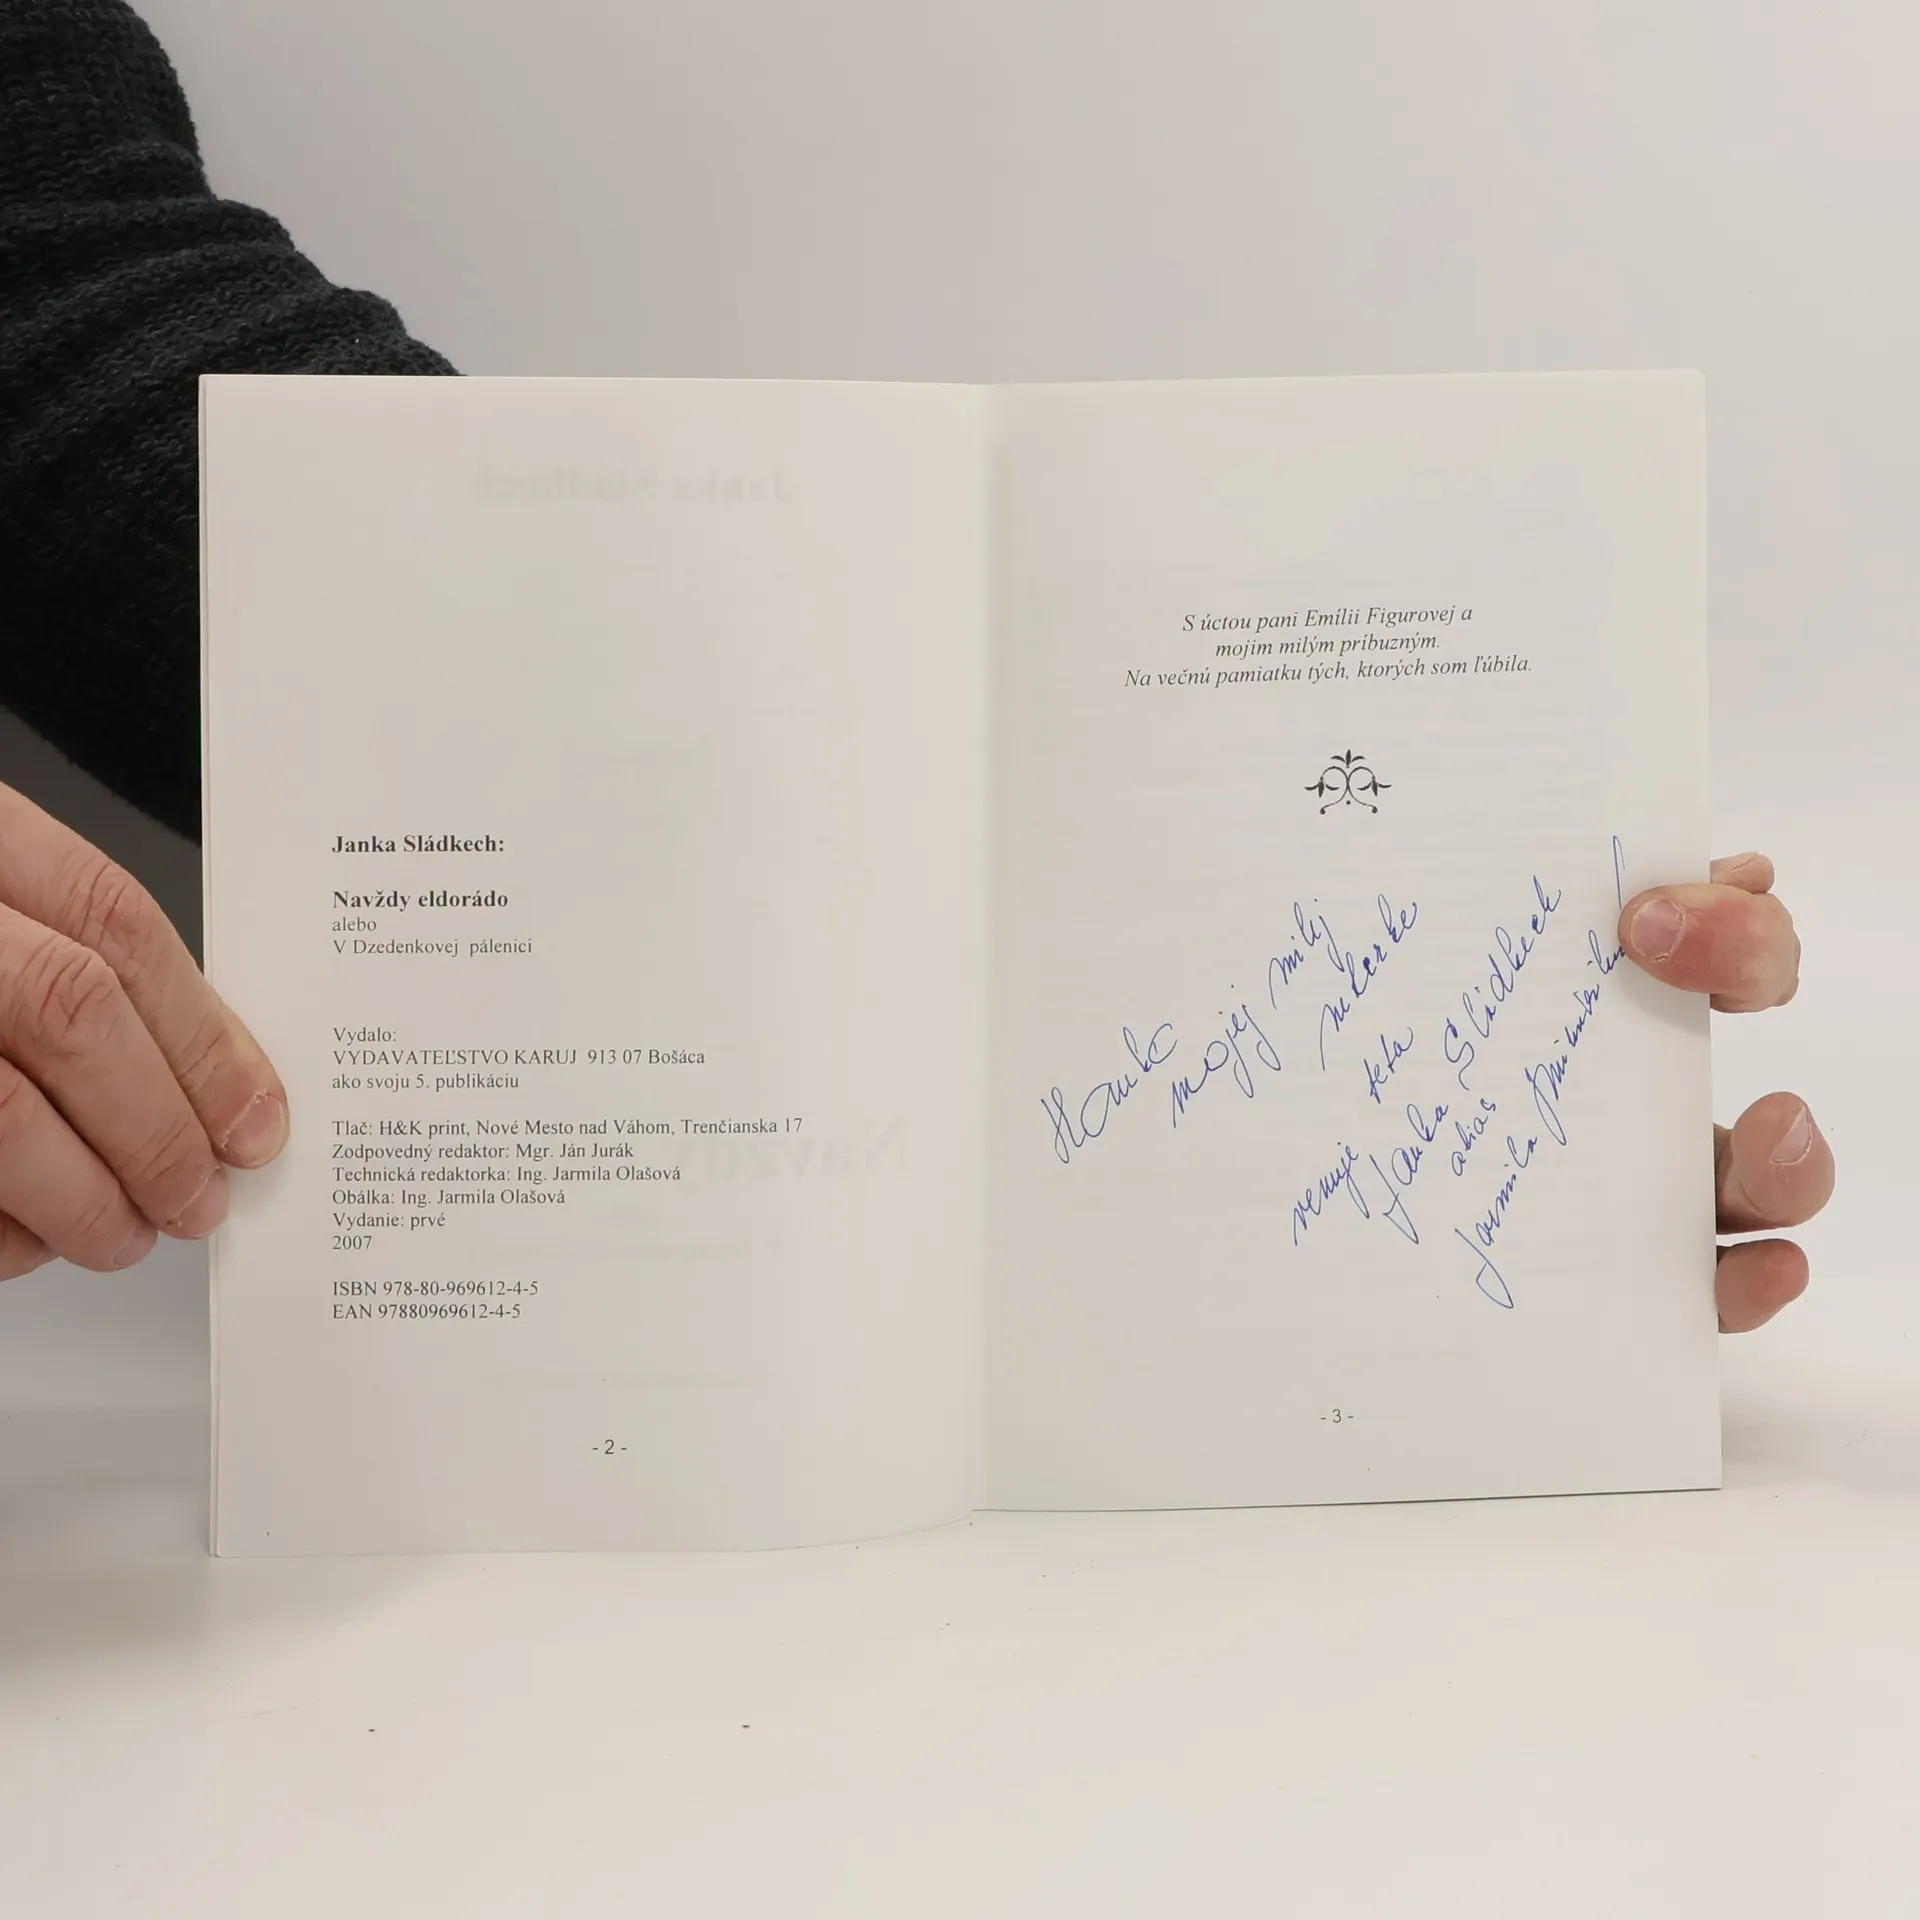 Janka Sládkech:
Navždy eldorádo
alebo
V Dzedenkovej pálenici
Vydalo:
VYDAVATEĽSTVO KARUJ 913 07 Bošáca
ako svoju 5. publikáciu
Tlač: H&K print, Nové Mesto nad Váhom, Trenčianska 17
Zodpovedný redaktor: Mgr. Ján Jurák
Technická redaktorka: Ing. Jarmila Olašová
Obálka: Ing. Jarmila Olašová
Vydanie: prvé
2007
ISBN 978-80-969612-4-5
EAN 97880969612-4-5
- 2 -
S úctou pani Emílii Figurovej a
mojim milým príbuzným.
Na večnú pamiatku tých, ktorých som ľúbila.
mojej milej
venuje teta
Janka Sládkech
alias
Jarmila
- 3 -